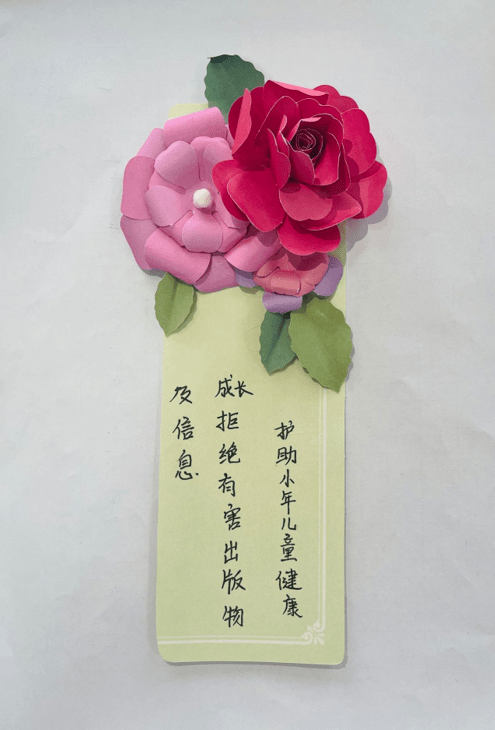 护助小年儿童健康
成长拒绝有害出版物
及信息